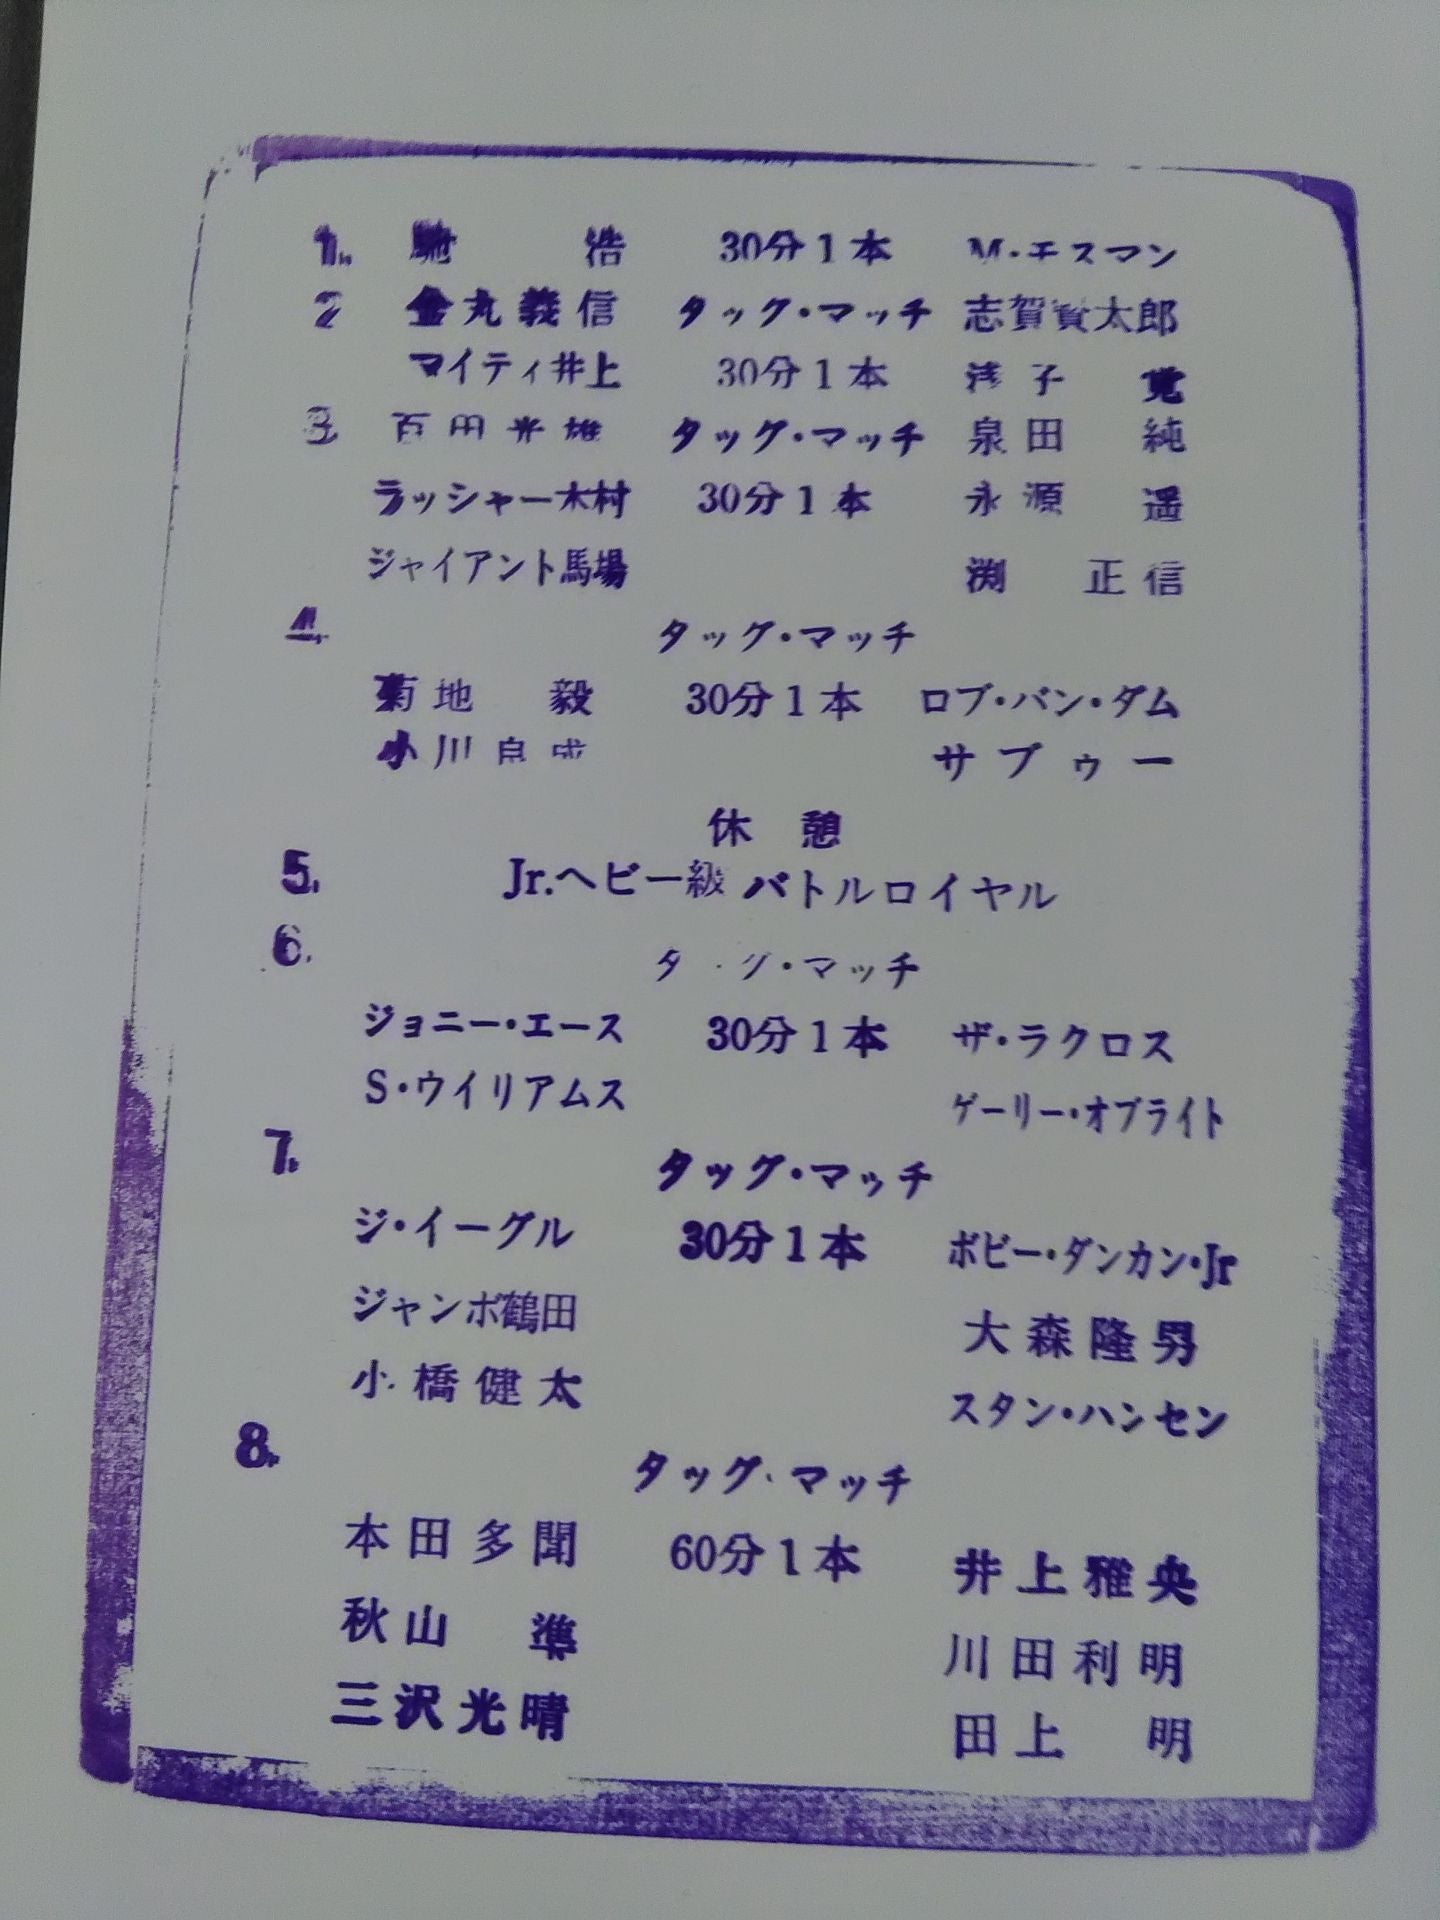 1. 馳 浩 30分1本 M・エスマン
2 金丸義信 タッグ・マッチ 志賀賢太郎
マイティ井上 30分1本 浅子 覚
3 百田光雄 タッグ・マッチ 泉田 純
ラッシャー木村 30分1本 永源 遥
ジャイアント馬場 渕 正信
4. タッグ・マッチ
菊地 毅 30分1本 ロブ・バン・ダム
小川良成 サブゥー
休憩
5. Jr.ヘビー級 バトルロイヤル
6. タッグ・マッチ
ジョニー・エース 30分1本 ザ・ラクロス
S・ウイリアムス ゲーリー・オブライト
7. タッグ・マッチ
ジ・イーグル 30分1本 ボビー・ダンカン・Jr
ジャンボ鶴田 大森隆男
小橋健太 スタン・ハンセン
8. タッグ・マッチ
本田多聞 60分1本 井上雅央
秋山 準 川田利明
三沢光晴 田上 明